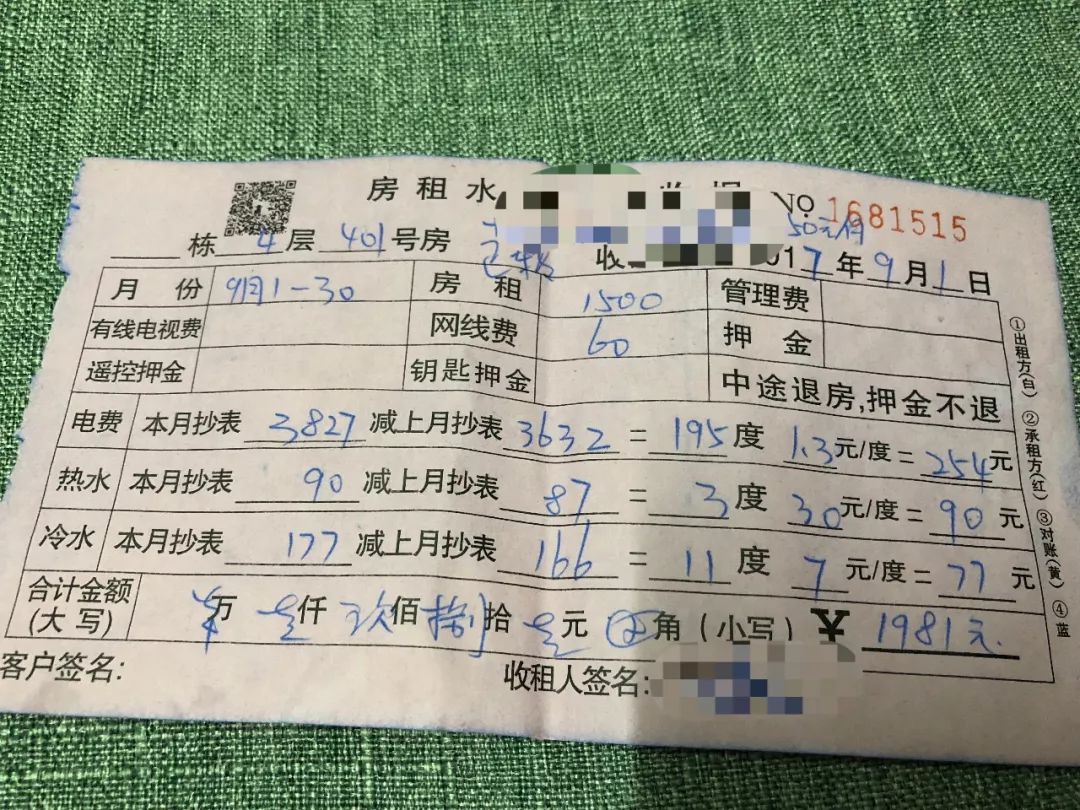 房租水 收据 NO 1681515
50元/月
栋 4 层 401 号房 收 017 年 9 月 1 日
月份 9月1-30 房租 1500 管理费
有线电视费 网线费 60 押金
遥控押金 钥匙押金 中途退房,押金不退
电费 本月抄表 3827 减上月抄表 3632 = 195 度 1.3 元/度= 254 元
热水 本月抄表 90 减上月抄表 87 = 3 度 30 元/度= 90 元
冷水 本月抄表 177 减上月抄表 166 = 11 度 7 元/度= 77 元
合计金额 万 壹仟 玖佰 捌拾 壹元 角 (小写) ¥ 1981元.
(大写)
客户签名: 收租人签名:
①出租方(白) ②承租方(红) ③对账(黄) ④蓝